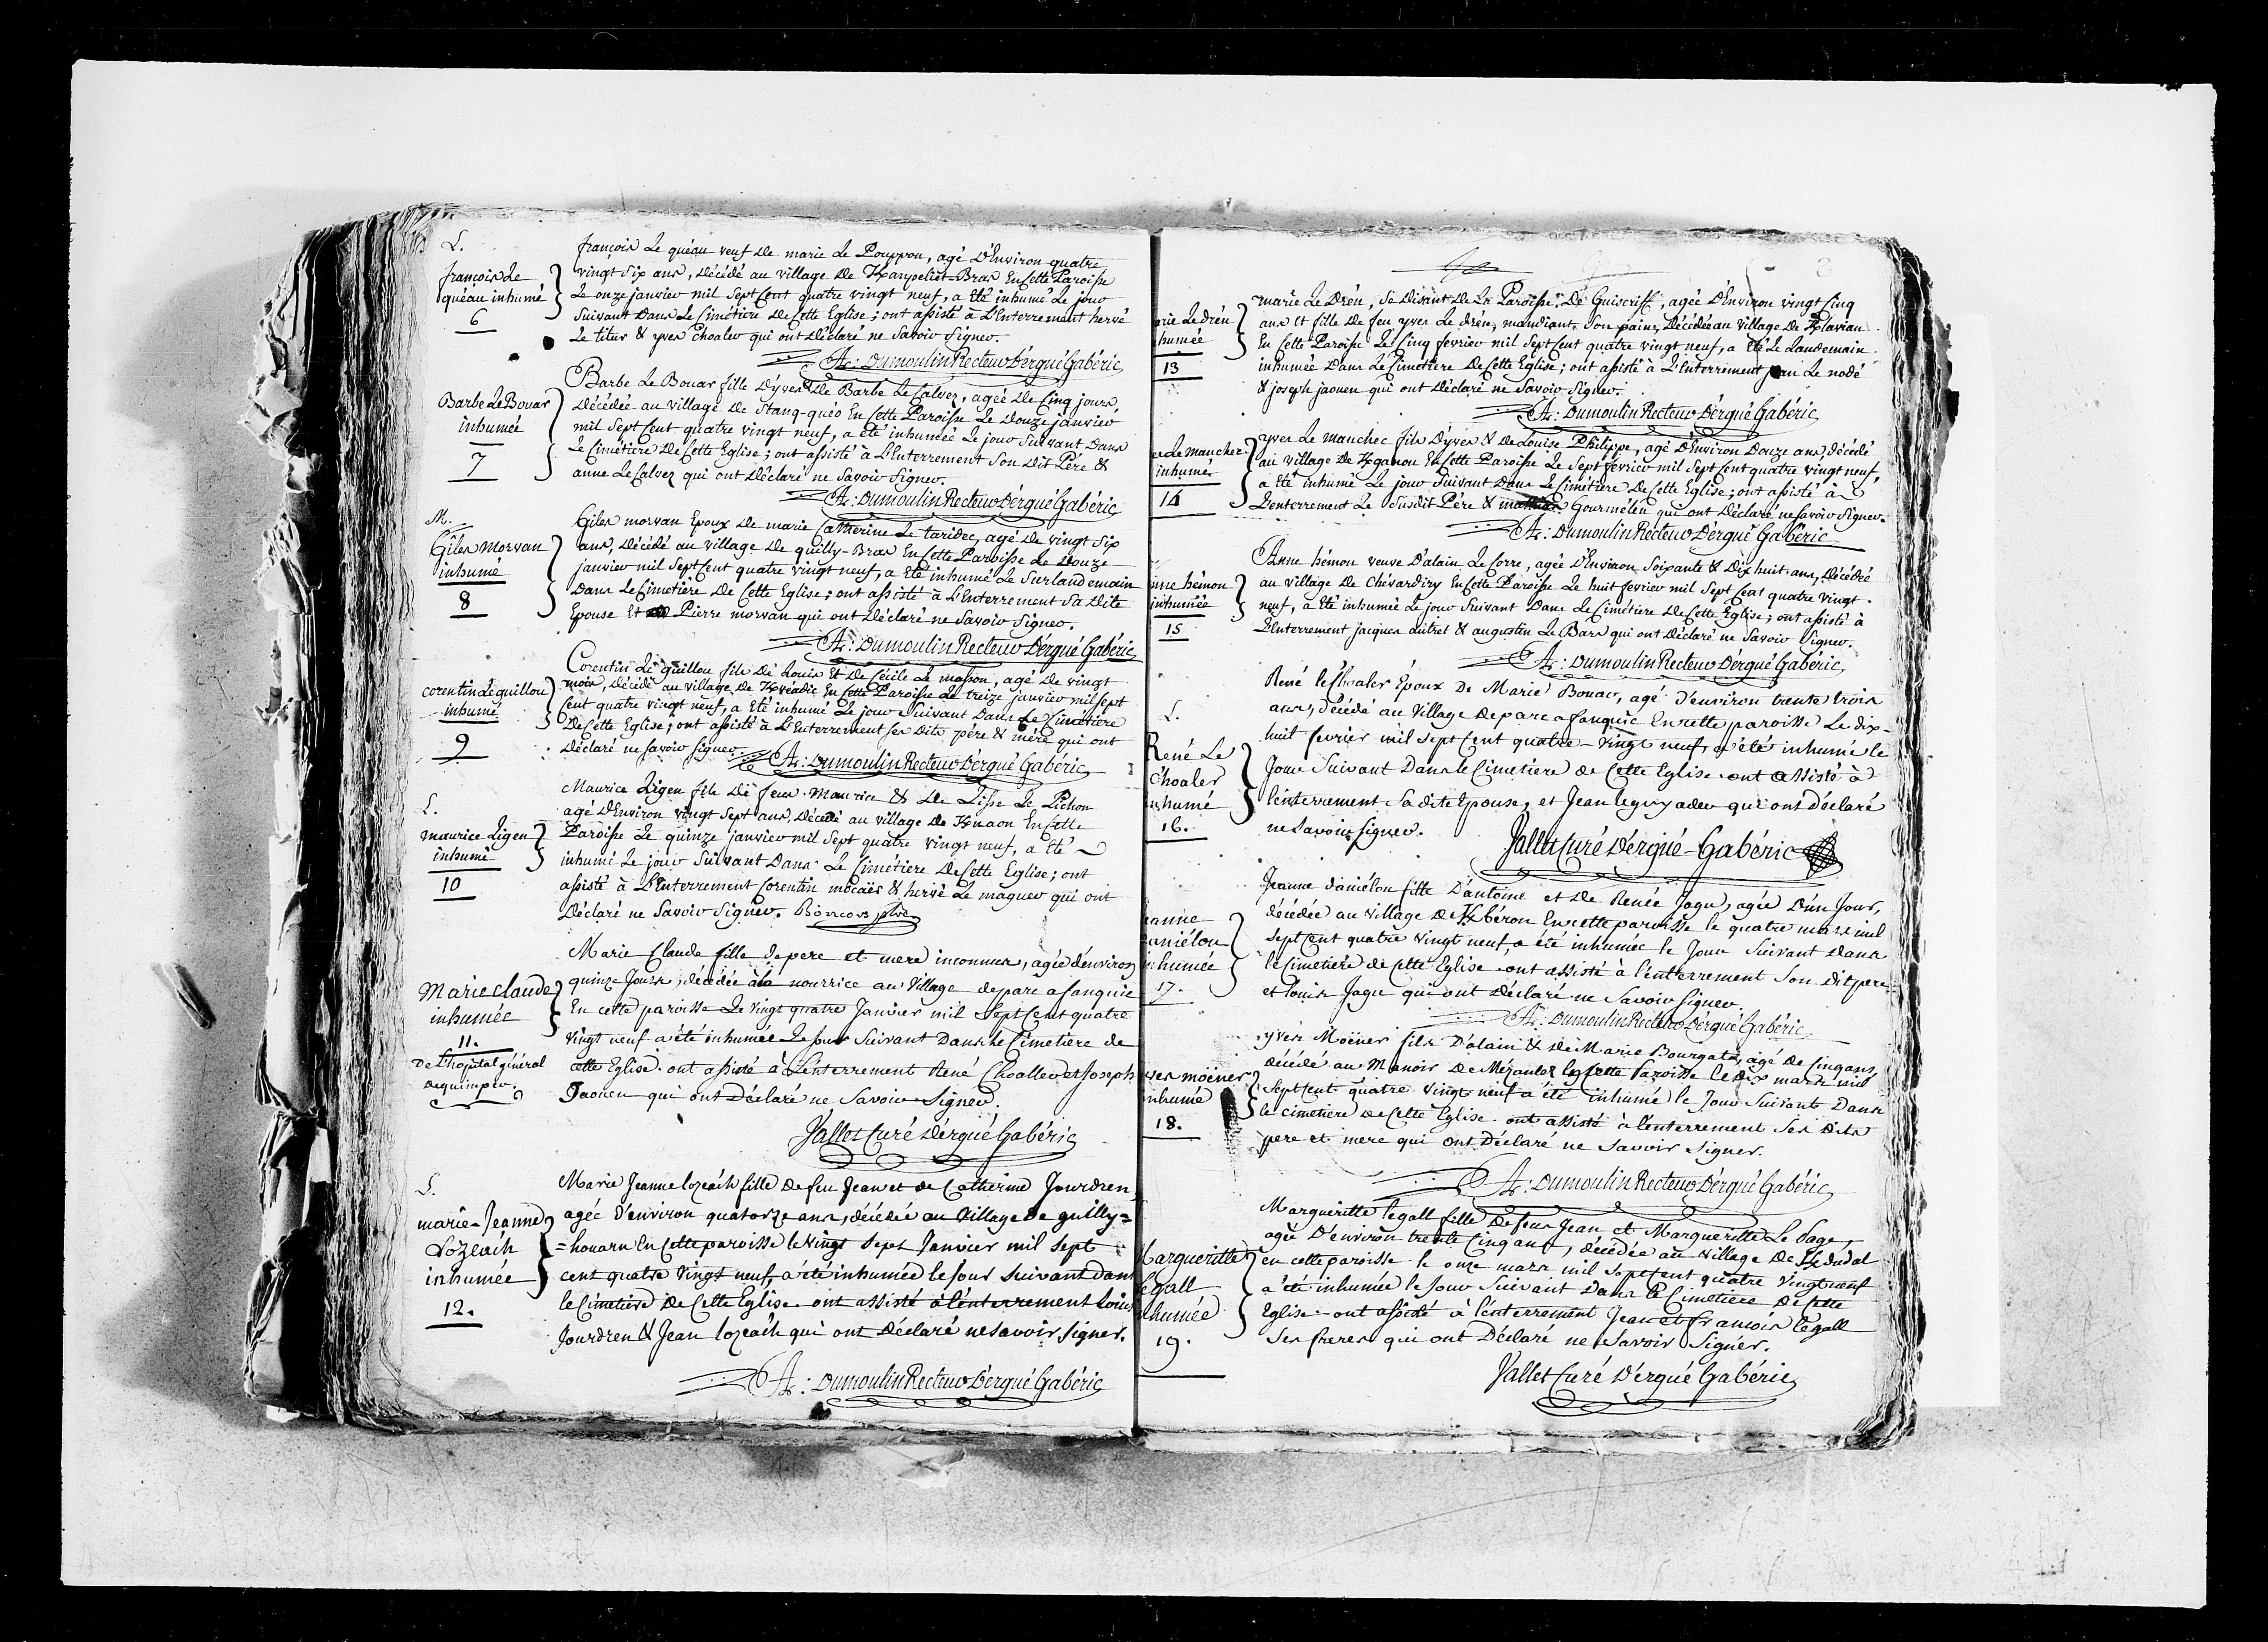 L.
françois Le
quéau inhumé
6
françois Le quéau veuf de marie Le Pouppon, agé d'Environ quatre
vingt Six ans, décédé au village de Kanpelien Bras En Cette Paroisse
Le onze janvier mil Sept Cent quatre vingt neuf, a Eté inhumé Le jour
Suivant Dans Le Cimétiere De Cette Eglise; ont assisté à L'Enterrement hervé
Le titur & yves Choaler qui ont déclaré ne Savoir Signer.
A: Dumoulin Recteur D'ergué Gabéric
Barbe Le Bouar
inhumée
7
Barbe Le Bouar fille d'yves & De Barbe Le Calvez, agée De Cinq jours,
Décédée au village de Stang-quéo En Cette Paroisse Le Douze janvier
mil Sept Cent quatre vingt neuf, a été inhumée Le jour Suivant Dans
Le Cimétiere De Cette Eglise; ont assisté à L'Enterrement Son Dit Pére &
anne Le Calvez qui ont Déclaré ne Savoir Signer.
A: Dumoulin Recteur D'ergué Gabéric
M.
Giles Morvan
inhumé
8
Giles morvan Epoux De marie Catherine Le taridec, agé de vingt Six
ans, Décédé au village De quilly-Bras En Cette Paroisse Le Douze
janvier mil Sept Cent quatre vingt neuf, a Eté inhumé Le Surlandemain
Dans Le Cimétiére De Cette Eglise; ont assisté à L'Enterrement Sa Dite
Epouse Et Pierre morvan qui ont Déclaré ne Savoir Signer.
A: Dumoulin Recteur D'ergué Gabéric
corentin Le quillou
inhumé
9
Corentin Le quillou fils De Louis Et De Cécile Le masson, agé De vingt
mois, Décédé au village De Kvéadic En Cette Paroisse Le treize janvier mil Sept
Cent quatre vingt neuf, a Eté inhumé Le jour Suivant Dans Le Cimétiere
De Cette Eglise; ont assisté à L'Enterrement Ses Dits pére & mére qui ont
Déclaré ne Savoir Signer.
A: Dumoulin Recteur D'ergué Gabéric
L.
maurice Ligen
inhumé
10
Maurice Ligen fils De feus Maurice & De Lisse Le Pichon
agé d'Environ vingt Sept ans, Décédé au village de Knaon En Cette
Paroisse Le quinze janvier mil Sept quatre vingt neuf, a Eté
inhumé Le jour Suivant Dans Le Cimétiere De Cette Eglise; ont
assisté à L'Enterrement Corentin mocaër & hervé Le magueur qui ont
Déclaré ne Savoir Signer. ptre
Marie claude
inhumée
11.
De L'hopital général
De quimper.
Marie Claude fille de pere et mere inconnus, agée d'environ
quinze Jours, décédée à la nourrice au Village de parc a fanquic
En cette paroisse Le vingt quatre Janvier mil Sept Cent quatre
vingt neuf a été inhumée Le jour Suivant Dans Le Cimetiere de
cette Eglise. ont assisté à L'enterrement René Choaller et Joseph
Jaouen qui ont Déclaré ne Savoir Signer.
Vallet Curé D'ergué Gabéric
L.
marie-Jeanne
Lozeách
inhumée
12.
Marie Jeanne lozeách fille de feu Jean et de Catherine Jourdren,
agée d'environ quatorze ans, décédée au Village De guilly=
=houarn En Cette paroisse le vingt Sept Janvier mil Sept
cent quatre vingt neuf, a été inhumée le Jour Suivant dans
le Cimetiere De Cette Eglise. ont assisté à l'enterrement Louis
Jourdren & Jean lozeách qui ont Déclaré ne savoir signer.
A: Dumoulin Recteur D'ergué Gabéric
arie Le drén
humée
13
marie Le Drén, Se Disant De La Paroisse De Guiscriff, agée d'Environ vingt Cinq
ans Et fille De feu yves Le drén, mandiant Son pain, Décédée au village De Klavian
En Cette Paroisse Le Cinq fevrier mil Sept Cent quatre vingt neuf, a Eté Le Landemain
inhumée Dans Le Cimétiere De Cette Eglise; ont assisté à L'Enterrement jean Le nodé
& joseph jaouen qui ont déclaré ne Savoir Signer.
A: Dumoulin Recteur D'ergué Gabéric
es Le manchec
inhumé
14
yves Le manchec fils d'yves & De Louise Philippe, agé d'Environ Douze ans, décédé
au village De Kganou En Cette Paroisse Le Sept février mil Sept Cent quatre vingt neuf,
a Eté inhumé Le jour Suivant Dans Le Cimétiere De Cette Eglise; ont assisté à
L'enterrement Le Susdit Pére & Gourmélén qui ont Déclaré ne Savoir Signer.
A: Dumoulin Recteur D'ergué Gabéric
nne hémon
inhumée
15
Anne hémon veuve D'alain Le Corre, agée d'Environ Soixante & Dix huit ans, Décédée
au village De Chévardiry En Cette Paroisse Le huit fevrier mil Sept Cent quatre vingt
neuf, a Eté inhumée Le jour Suivant Dans Le Cimétiere De Cette Eglise; ont assisté à
L'Enterrement jacques autret & augustin Le Bars qui ont Déclaré ne Savoir Signer.
A: Dumoulin Recteur D'ergué Gabéric
L.
René Le
Choaler
inhumé
16.
René le Choaler Époux De Marie Bouar, agé d'environ trente trois
ans, décédé au Village de parc a fanquic En cette paroisse Le dix-
huit fevrier mil Sept Cent quatre-vingt neuf, a été inhumé le
Jour Suivant Dans le Cimetiere de Cette Eglise. ont assisté à
l'enterrement Sa dite Epouse, et Jean leguyader qui ont déclaré
ne Savoir Signer.
Vallet Curé D'ergué-Gabéric
eanne
aniélou
inhumée
17.
Jeanne daniélou fille D'antoine et de Renée Jagu, agée d'un Jour,
décédée au Village de Kbéron En cette paroisse le quatre mars mil
Sept Cent quatre vingt neuf, a été inhumée le Jour Suivant dans
le Cimetiére de Cette Eglise. ont assisté à l'enterrement Son Dit pere
et louis Jagu qui ont Déclaré ne Savoir Signer.
A: Dumoulin Recteur D'ergué Gabéric
yves moëner
inhumé
18.
yves Moëner fils D'alain & de Marie Bourgate, agé de Cinq ans,
décédé au Manoir De Mézanlez En Cette Paroisse le dix mars mil
Sept Cent quatre vingt neuf a été inhumé le Jour Suivant Dans
le Cimetiere de Cette Eglise. ont assisté à l'enterrement Ses Dits
pere et mere qui ont Déclaré ne Savoir Signer.
A: Dumoulin Recteur D'ergué Gabéric
Margueritte
légall
inhumée
19.
Margueritte légall fille de feus Jean et Margueritte Le Page,
agée D'environ trente Cinq ans, décédée au village De Kdudal
en cette paroisse le onze mars mil Sept Cent quatre vingt neuf
a été inhumée le Jour Suivant Dans le Cimetiere De Cette
Eglise. ont assisté à l'enterrement Jean et François légall
Ses freres qui ont Déclaré ne Savoir Signer.
Vallet Curé D'ergué Gabéric